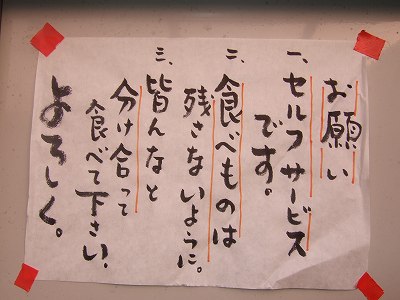 お願い
一、セルフサービス
です。
二、食べものは
残さないように。
三、皆んなと
分け合って
食べて下さい、
よろしく。